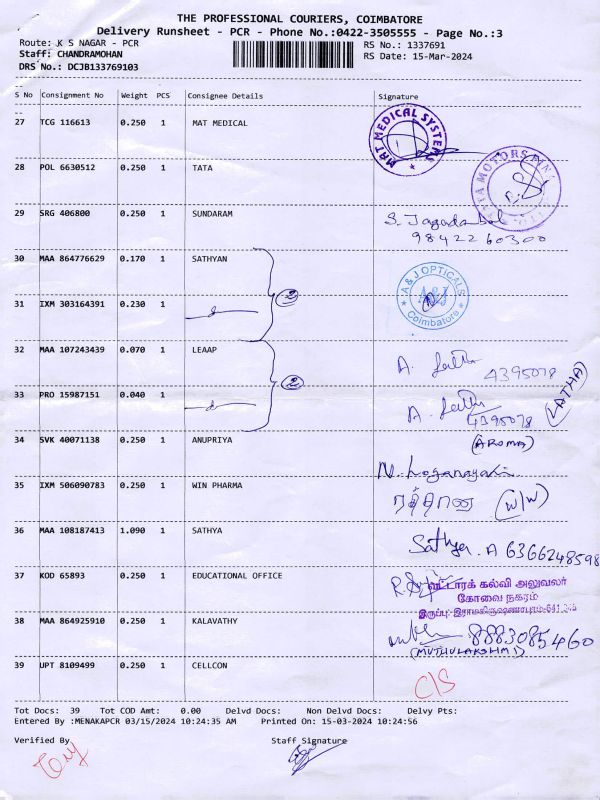 THE PROFESSIONAL COURIERS, COIMBATORE
Delivery Runsheet - PCR - Phone No.:0422-3505555 - Page No.:3
Route: K S NAGAR - PCR
RS No.: 1337691
Staff: CHANDRAMOHAN
RS Date: 15-Mar-2024
DRS No.: DCJB133769103
S No Consignment No Weight PCS Consignee Details Signature
27 TCG 116613 0.250 1 MAT MEDICAL
MAT MEDICAL SYSTEMS
28 POL 6630512 0.250 1 TATA
MOTORS
29 SRG 406800 0.250 1 SUNDARAM
9842260300
30 MAA 864776629 0.170 1 SATHYAN
A & J OPTICALS
A&J
Coimbatore
31 IXM 303164391 0.230 1
2
32 MAA 107243439 0.070 1 LEAAP
A. 4395078
33 PRO 15987151 0.040 1
2
A. 4395078 (LATHA)
34 SVK 40071138 0.250 1 ANUPRIYA
(AROMA)
N. Loganayaki
35 IXM 506090783 0.250 1 WIN PHARMA
(W/W)
36 MAA 108187413 1.090 1 SATHYA
Sathya. A 6366248598
37 KOD 65893 0.250 1 EDUCATIONAL OFFICE
வட்டாரக் கல்வி அலுவலர்
கோவை நகரம்
இருப்பு: இராமகிருஷ்ணாபுரம்-641
38 MAA 864925910 0.250 1 KALAVATHY
8883085460
(MUTHULAKSHMI)
39 UPT 8109499 0.250 1 CELLCON
C/S
Tot Docs: 39 Tot COD Amt: 0.00 Delvd Docs: Non Delvd Docs: Delvy Pts:
Entered By :MENAKAPCR 03/15/2024 10:24:35 AM Printed On: 15-03-2024 10:24:56
Verified By
Staff Signature